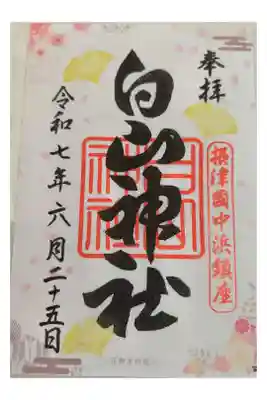 奉拝
摂津國中浜鎮座
白山神社
白山神社
令和七年六月二十五日